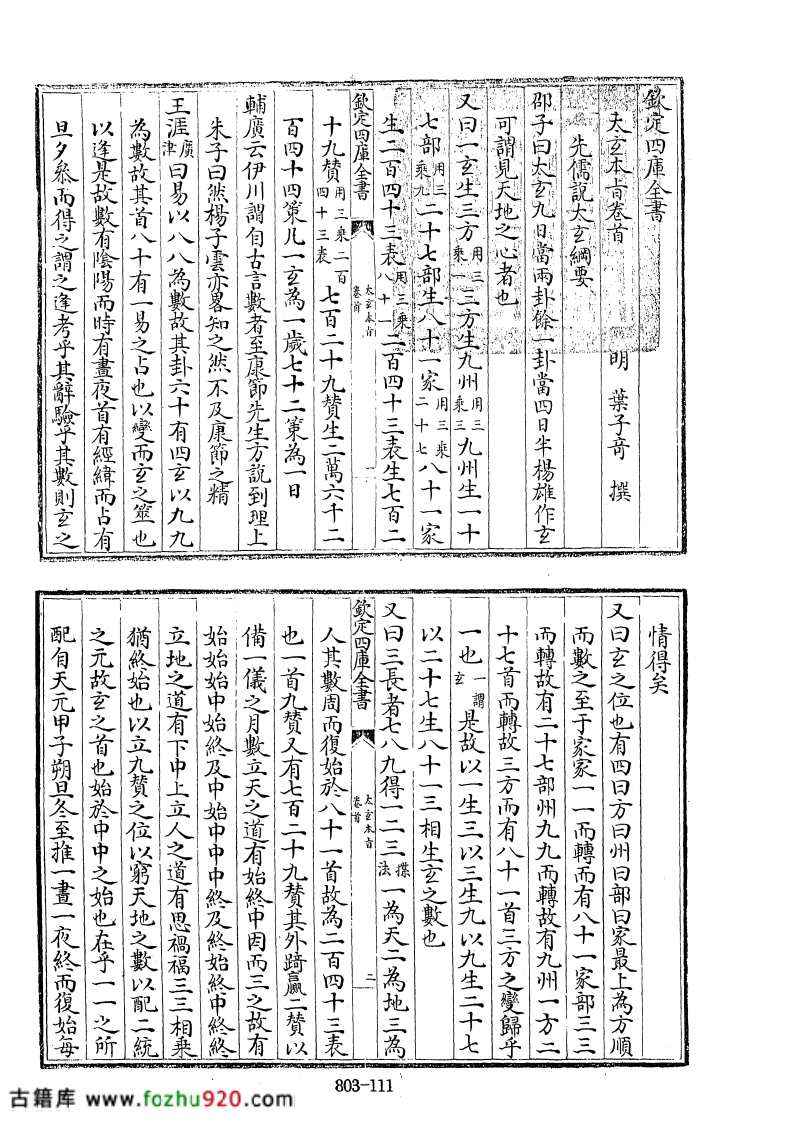 欽定四庫全書
太玄本旨卷首
明 葉子奇 撰
先儒說太玄綱要
邵子曰太玄九日當兩卦餘一卦當四日半楊雄作玄
可謂見天地之心者也
又曰一玄生三方用三乘一三方生九州用三乘三九州生一十
七部用三乘九二十七部生八十一家用三乘二十七八十一家
生二百四十三表用三乘八十一二百四十三表生七百二
欽定四庫全書 太玄本旨卷首 一
十九贊用三乘二百四十三表七百二十九贊生二萬六千二
百四十四策凡一玄為一歲七十二策為一日
輔廣云伊川謂自古言數者至康節先生方說到理上
朱子曰然楊子雲亦畧知之然不及康節之精
王涯廣津曰易以八八為數故其卦六十有四玄以九九
為數故其首八十有一易之占也以變而玄之筮也
以逢是故數有陰陽而時有晝夜首有經緯而占有
旦夕叅而得之謂之逢考乎其辭驗乎其數則玄之
情得矣
又曰玄之位也有四曰方曰州曰部曰家最上為方順
而數之至于家家一一而轉而有八十一家部三三
而轉故有二十七部州九九而轉故有九州一方二
十七首而轉故三方而有八十一首三方之變歸乎
一也一謂玄是故以一生三以三生九以九生二十七
以二十七生八十一三相生玄之數也
又曰三長者七八九得一二三揲法一為天二為地三為
欽定四庫全書 太玄本旨卷首 二
人其數周而復始於八十一首故為二百四十三表
也一首九贊又有七百二十九贊其外踦贏二贊以
備一儀之月數立天之道有始終中因而三之故有
始始始中始終及中始中中中終及終始終中終終
立地之道有下中上立人之道有思禍福三三相乗
猶終始也以立九贊之位以窮天地之數以配二統
之元故玄之首也始於中中之始也在乎一一之所
配自天元甲子朔旦冬至推一晝一夜終而復始每
803-111
古籍库 www.fozhu920.com